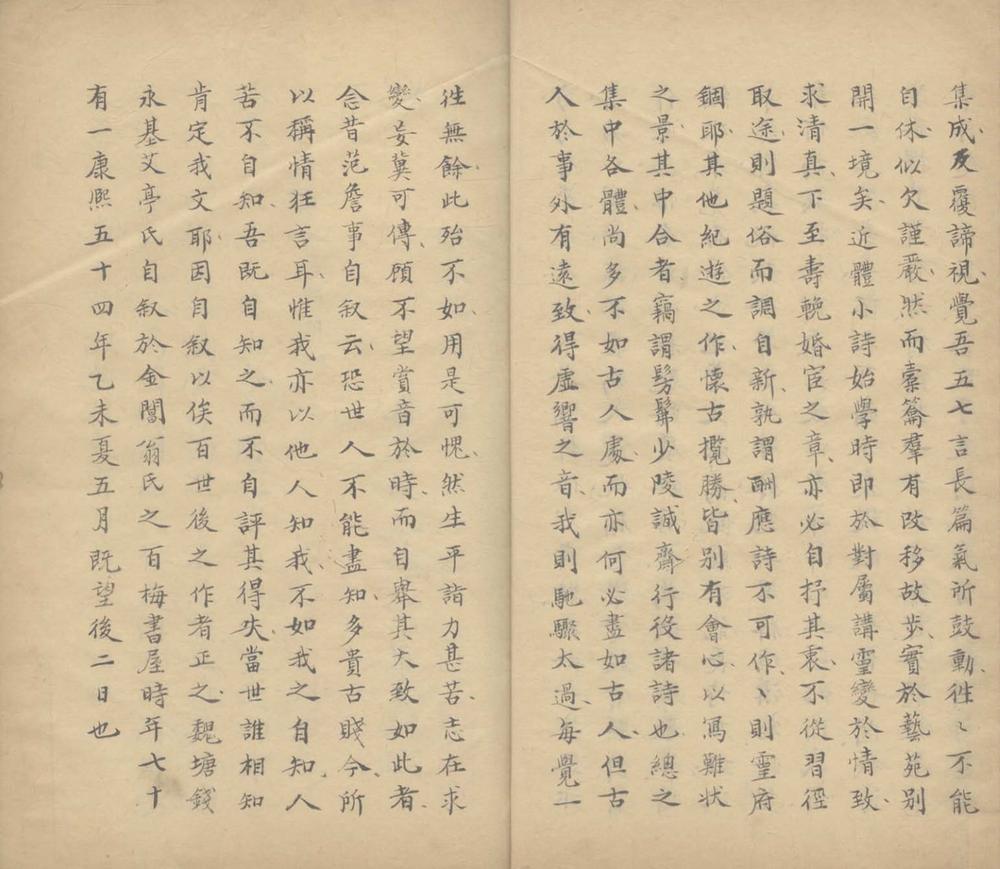 集成反覆諦視覺吾五七言長篇氣所鼓動徃〻不能
自休似欠謹嚴然而橐籥羣有改移故步實於藝苑别
開一境矣近體小詩始學時即於對屬講靈變於情致
求清真下至壽輓婚宦之章亦必自抒其衷不從習徑
取途則題俗而調自新孰謂酬應詩不可作〻則靈府
錮耶其他紀遊之作懷古攬勝皆别有會心以寫難狀
之景其中合者竊謂髣髴少陵誠齋行役諸詩也總之
集中各體尚多不如古人處而亦何必盡如古人但古
人於事外有遠致得虛響之音我則馳驟太過每覺一
徃無餘此殆不如用是可愧然生平詣力甚苦志在求
變妄冀可傳顧不望賞音於時而自舉其大致如此者
念昔范詹事自叙云恐世人不能盡知多貴古賤今所
以稱情狂言耳惟我亦以他人知我不如我之自知人
苦不自知吾既自知之而不自評其得失當世誰相知
肯定我文耶因自叙以俟百世後之作者正之魏塘錢
永基艾亭氏自叙於金閶翁氏之百梅書屋時年七十
有一康熙五十四年乙未夏五月既望後二日也